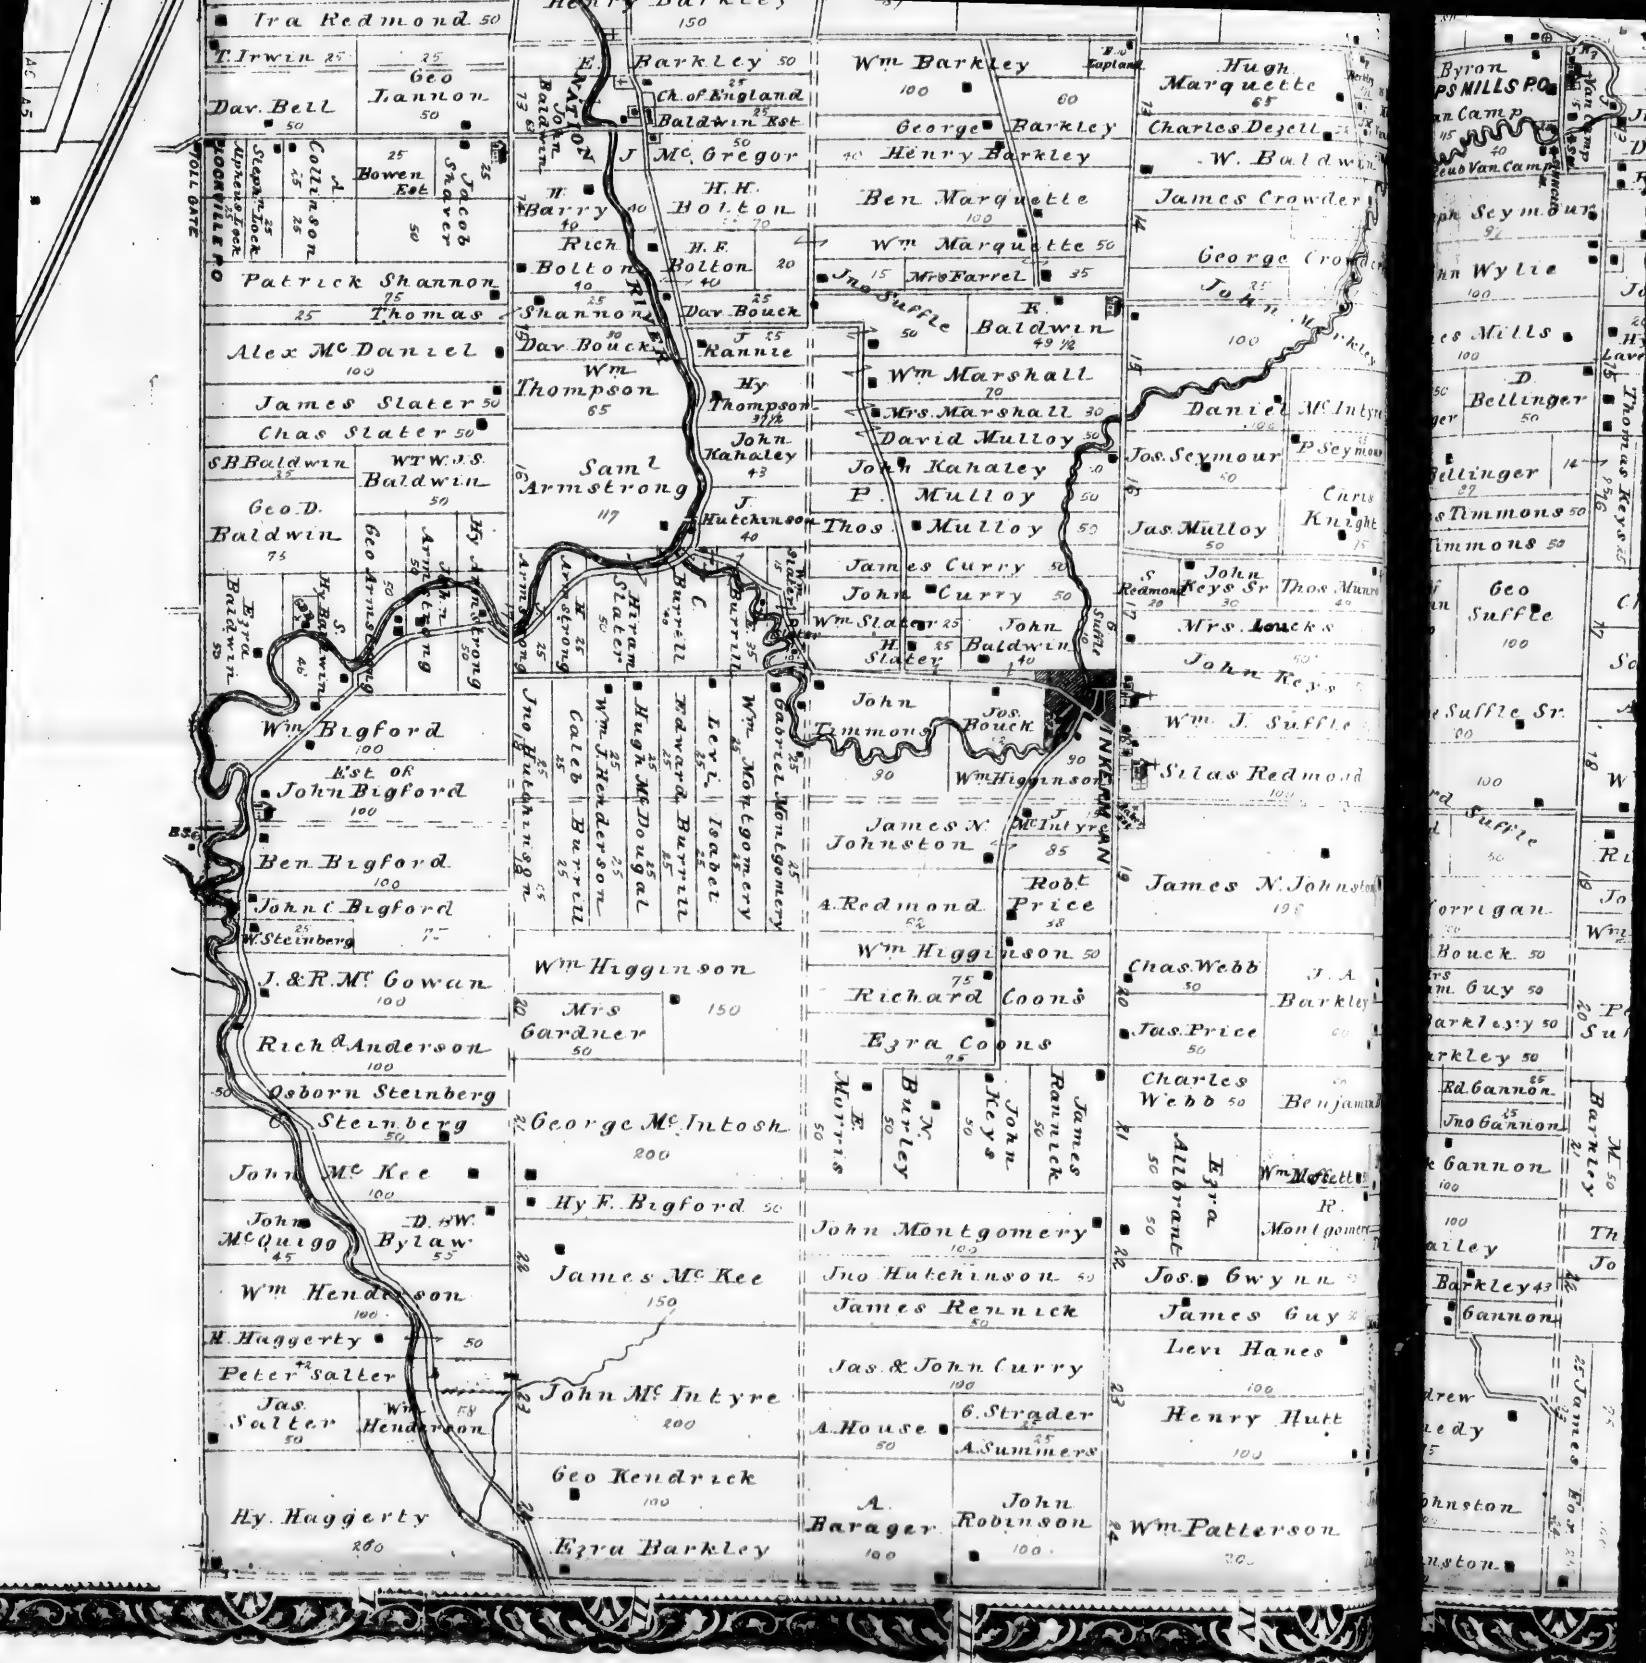 Ira Redmond 50
T. Irwin 25
25
Geo
Lannon
50
Dav. Bell
50
TOLL GATE
BOORVILLE P.O
Alpheus Lock
25
Stephen Lock
25
A.
Collinson
25
25
25
Bowen
Est
50
Jacob
Shaver
25
Patrick Shannon
75
25 Thomas
Alex Mc Daniel
100
James Slater 50
Chas Slater 50
S.B. Baldwin
25
WTW. J.S.
Baldwin
50
Geo. D.
Baldwin
75
Geo Armstrong
50
John
Armstrong
50
Hy Armstrong
50
Ezra
Baldwin
50
S.
Hy Baldwin
46
Wm Bigford
100
Est of
John Bigford
100
B.S.
Ben Bigford
100
John C. Bigford
W. Steinberg
25
J. & R. Mc Gowan
100
Richd Anderson
100
50 Osborn Steinberg
C Steinberg
50
John Mc Kee
100
John
McQuigg
45
D. & W.
Bylaw
55
Wm Henderson
100
H. Haggerty
50
Peter Salter
42
Jas.
Salter
50
Wm
Henderson
58
Hy. Haggerty
200
Henry Barkley
150
E. Barkley 50
25
Ch. of England
25
Baldwin Est
50
John
Baldwin
NATION
RIVER
J Mc Gregor
W.
Barry 40
40
H. H.
Bolton
70
Rich
Bolton
40
H. F.
Bolton
40
20
25
Shannon
25
Dav. Bouck
30
Dav Bouck
J 25
Rannie
Wm
Thompson
65
Hy
Thompson
37 1/2
John
Kahaley
43
Saml
Armstrong
117
J.
Hutchinson
40
J.
Armstrong
25
H
Armstrong
25
Hiram
Slater
50
C
Burrill
40
E.
Burrill
25
Wm
Slater
15
Jno Hutchinson
25
25
Caleb Burrill
25
25
Wm J. Henderson
25
25
Hugh Mc Dougal
25
25
Edward Burrill
25
25
Levi Isabel
25
25
Wm Montgomery
25
25
Gabriel Montgomery
25
25
Wm Higginson
150
Mrs
Gardner
50
George Mc Intosh
200
Hy F. Bigford 50
James Mc Kee
150
John Mc Intyre
200
Geo Kendrick
100
Ezra Barkley
Wm Barkley
100
60
George Barkley
40 Henry Barkley
Ben Marquette
100
Wm Marquette 50
Jno Suffle
15
50
Mrs Farrel 35
E.
Baldwin
49 1/2
Wm Marshall
70
Mrs. Marshall 30
David Mulloy 50
John Kahaley 50
P. Mulloy 50
Thos. Mulloy 50
James Curry 50
John Curry 50
Wm Slater 25
H. 25
Slater
John
Baldwin
40
G
Suffle
10
John
Timmons
90
Jos.
Bouck
Wm Higginson
90
INKERMAN
James N.
Johnston
J
McIntyre
85
A. Redmond
62
Robt
Price
38
Wm Higginson 50
75
Richard Coons
Ezra Coons
75
E.
Morris
50
N.
Burley
50
John
Keys
50
James
Rannick
50
John Montgomery
100
Jno Hutchinson 50
James Rennick
50
Jas. & John Curry
100
A. House
50
G. Strader
25
25
A. Summers
A.
Barager
100
John
Robinson
100
Hugh
Marquette
65
Charles Dezell
W. Baldwin
James Crowder
George Crowder
25
John Markley
100
Daniel McIntyre
100
Jos. Seymour
50
P Seymour
Jas. Mulloy
50
Chris
Knight
75
S
Redmond
20
John
Keys Sr
30
Thos Munro
40
Mrs. Loucks
50
John Keys
Wm. J. Suffle
Silas Redmond
100
James N. Johnston
198
Chas. Webb
50
J. A
Barkley
60
Jas. Price
50
Charles
Webb 50
Benjamin
Ezra
Allbrant
50
50
Wm Moffett
R.
Montgomery
Jos. Gwynn
James Guy
Levi Hanes
100
Henry Hutt
100
Wm Patterson
200
Byron
PS MILLS P.O
an Camp
40
Reub Van Camp
Van Camp
ph Seymour
97
hn Wylie
100
es Mills
100
D
Bellinger
50
Bellinger 14
87
s Timmons 50
immons 50
Geo
Suffle
100
e Suffle Sr.
100
rd Suffle
50
orrigan
Bouck 50
m Guy 50
Barkley 50
arkley 50
25
Ed. Gannon
25
Jno Gannon
k Gannon
100
100
ailey
Barkley 43
Gannon
drew
edy
75
ohnston
nston
Thomas Keys 25
Barkley
M. 50
25 James